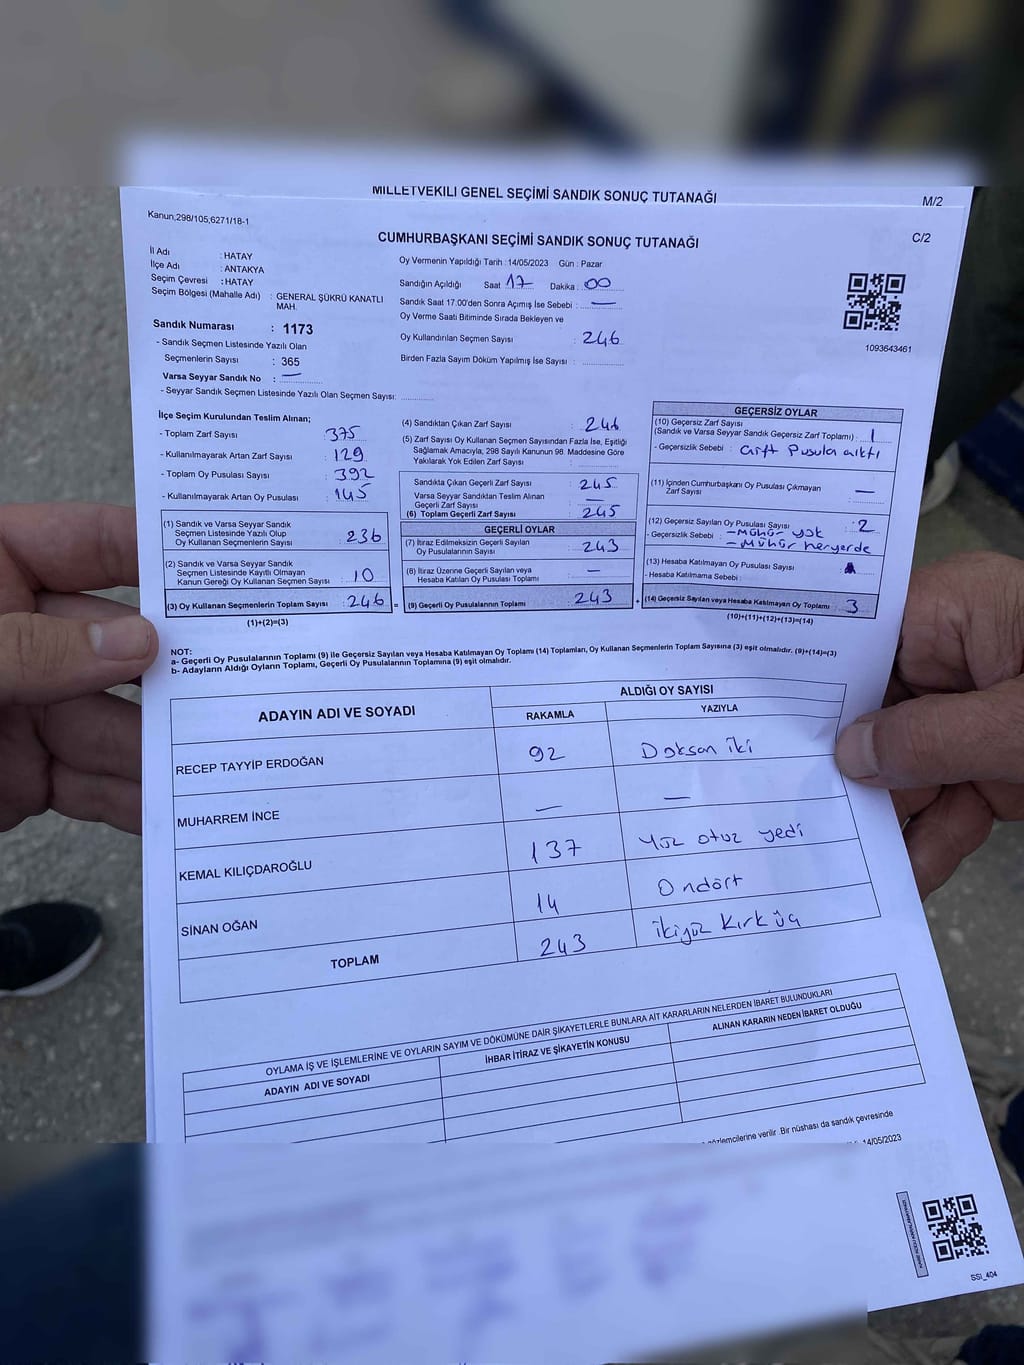 MİLLETVEKİLİ GENEL SEÇİMİ SANDIK SONUÇ TUTANAĞI
M/2
Kanun,298/105,6271/18-1
CUMHURBAŞKANI SEÇİMİ SANDIK SONUÇ TUTANAĞI
C/2
İl Adı : HATAY
İlçe Adı : ANTAKYA
Seçim Çevresi : HATAY
Seçim Bölgesi (Mahalle Adı) : GENERAL ŞÜKRÜ KANATLI MAH.
Sandık Numarası : 1173
- Sandık Seçmen Listesinde Yazılı Olan
Seçmenlerin Sayısı : 365
Varsa Seyyar Sandık No : —
- Seyyar Sandık Seçmen Listesinde Yazılı Olan Seçmen Sayısı:
Oy Vermenin Yapıldığı Tarih :14/05/2023 Gün : Pazar
Sandığın Açıldığı Saat 17 Dakika : 00
Sandık Saat 17.00'den Sonra Açımış İse Sebebi : —
Oy Verme Saati Bitiminde Sırada Bekleyen ve
Oy Kullandırılan Seçmen Sayısı : 246
Birden Fazla Sayım Döküm Yapılmış İse Sayısı :
1093643461
İlçe Seçim Kurulundan Teslim Alınan;
- Toplam Zarf Sayısı : 375
- Kullanılmayarak Artan Zarf Sayısı : 129
- Toplam Oy Pusulası Sayısı : 392
- Kullanılmayarak Artan Oy Pusulası : 145
(1) Sandık ve Varsa Seyyar Sandık
Seçmen Listesinde Yazılı Olup
Oy Kullanan Seçmenlerin Sayısı : 236
(2) Sandık ve Varsa Seyyar Sandık
Seçmen Listesinde Kayıtlı Olmayan
Kanun Gereği Oy Kullanan Seçmen Sayısı : 10
(3) Oy Kullanan Seçmenlerin Toplam Sayısı : 246
(1)+(2)=(3)
=
(4) Sandıktan Çıkan Zarf Sayısı : 246
(5) Zarf Sayısı Oy Kullanan Seçmen Sayısından Fazla İse, Eşitliği
Sağlamak Amacıyla, 298 Sayılı Kanunun 98. Maddesine Göre
Yakılarak Yok Edilen Zarf Sayısı :
Sandıkta Çıkan Geçerli Zarf Sayısı : 245
Varsa Seyyar Sandıktan Teslim Alınan
Geçerli Zarf Sayısı : —
(6) Toplam Geçerli Zarf Sayısı : 245
GEÇERLİ OYLAR
(7) İtiraz Edilmeksizin Geçerli Sayılan
Oy Pusulalarının Sayısı : 243
(8) İtiraz Üzerine Geçerli Sayılan veya
Hesaba Katılan Oy Pusulası Toplamı : —
(9) Geçerli Oy Pusulalarının Toplamı : 243
+
GEÇERSİZ OYLAR
(10) Geçersiz Zarf Sayısı
(Sandık ve Varsa Seyyar Sandık Geçersiz Zarf Toplamı) : 1
- Geçersizlik Sebebi : Çift Pusula çıktı
(11) İçinden Cumhurbaşkanı Oy Pusulası Çıkmayan
Zarf Sayısı : —
(12) Geçersiz Sayılan Oy Pusulası Sayısı : 2
- Geçersizlik Sebebi : -Mühür yok
-Mühür heryerde
(13) Hesaba Katılmayan Oy Pusulası Sayısı :
- Hesaba Katılmama Sebebi :
(14) Geçersiz Sayılan veya Hesaba Katılmayan Oy Toplamı : 3
(10)+(11)+(12)+(13)=(14)
NOT:
a- Geçerli Oy Pusulalarının Toplamı (9) ile Geçersiz Sayılan veya Hesaba Katılmayan Oy Toplamı (14) Toplamları, Oy Kullanan Seçmenlerin Toplam Sayısına (3) eşit olmalıdır. (9)+(14)=(3)
b- Adayların Aldığı Oyların Toplamı, Geçerli Oy Pusulalarının Toplamına (9) eşit olmalıdır.
ADAYIN ADI VE SOYADI
ALDIĞI OY SAYISI
RAKAMLA YAZIYLA
RECEP TAYYİP ERDOĞAN 92 Doksan iki
MUHARREM İNCE — —
KEMAL KILIÇDAROĞLU 137 Yüz otuz yedi
SİNAN OĞAN 14 Ondört
TOPLAM 243 İkiyüz Kırk üç
OYLAMA İŞ VE İŞLEMLERİNE VE OYLARIN SAYIM VE DÖKÜMÜNE DAİR ŞİKAYETLERLE BUNLARA AİT KARARLARIN NELERDEN İBARET BULUNDUKLARI
ADAYIN ADI VE SOYADI İHBAR İTİRAZ VE ŞİKAYETİN KONUSU ALINAN KARARIN NEDEN İBARET OLDUĞU
gözlemcilerine verilir .Bir nüshası da sandık çevresinde
14/05/2023
SSI_404